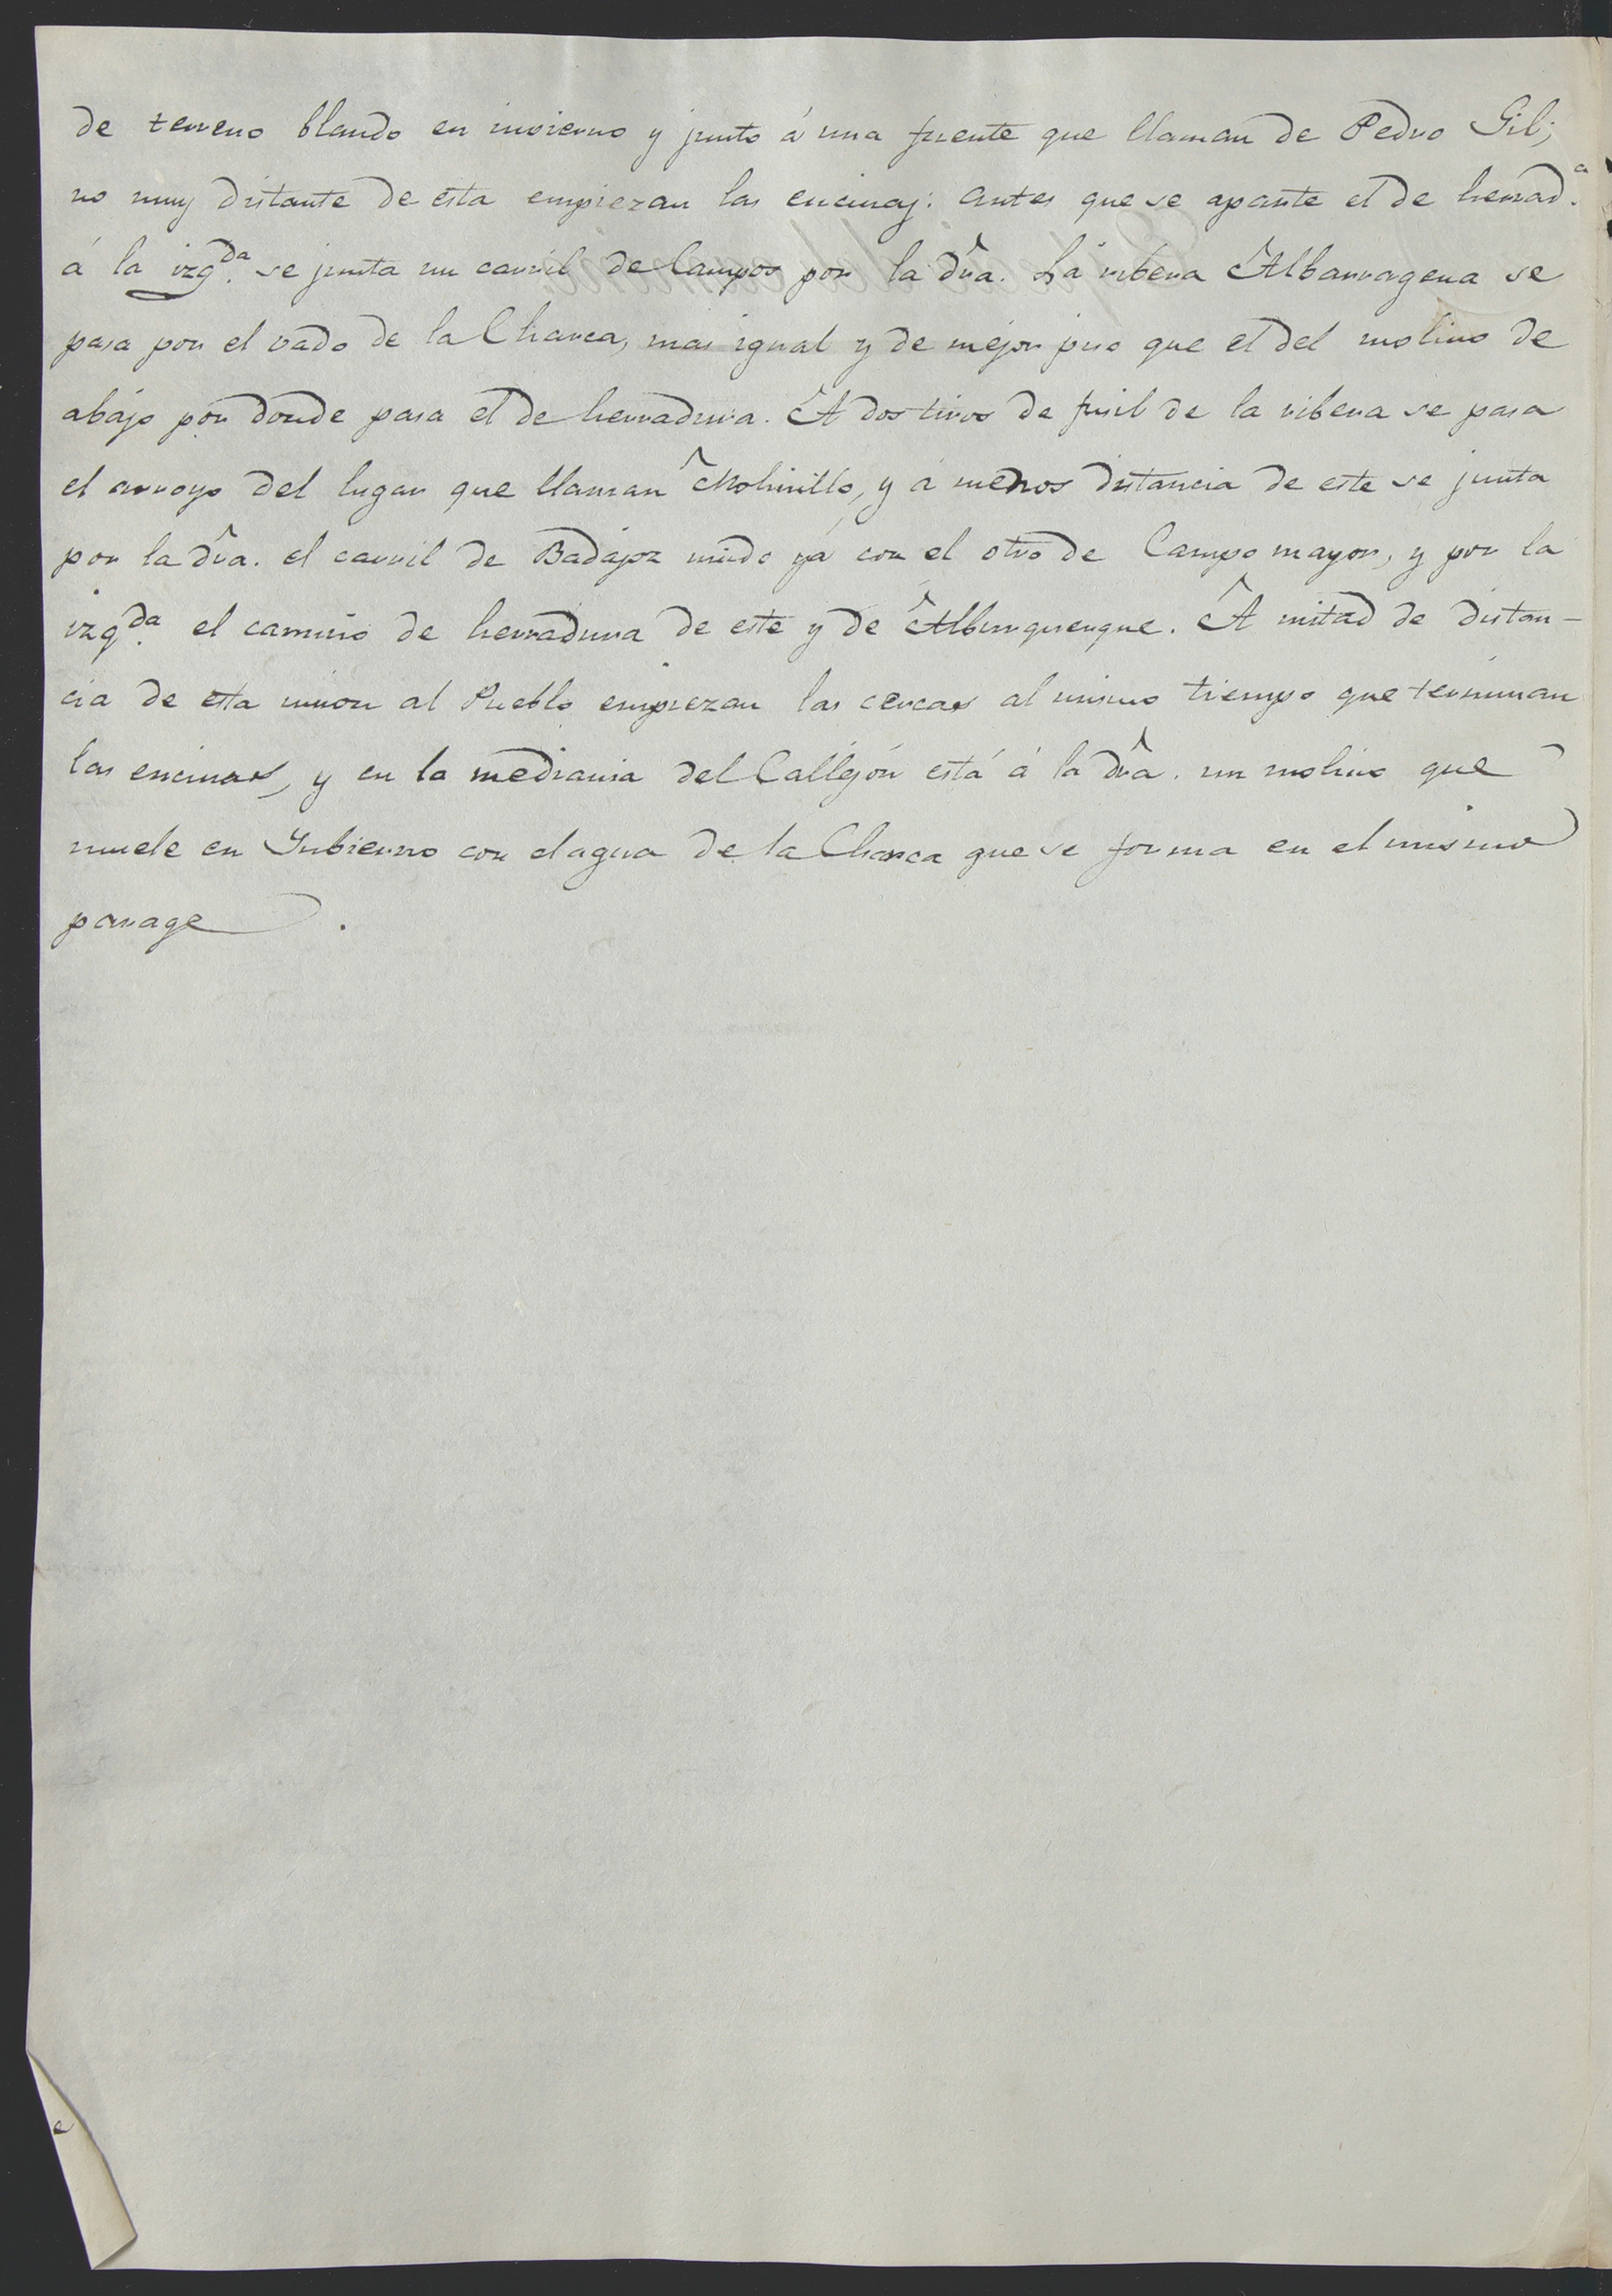 de terreno blando en invierno y junto á una fuente que llaman de Pedro Gil;
no muy distante de esta empiezan las encinas: antes que se aparte el de herrad.ª
á la izq.da se junta un carril de Campos por la dra. La ribera Albarragena se
pasa por el vado de la Charca, mas igual y de mejor piso que el del molino de
abájo por donde pasa el de herradura. A dos tiros de fusil de la ribera se pasa
el arroyo del lugar que llaman Molinillo, y á menos distancia de este se junta
por la dra. el carril de Badajoz unido yá con el otro de Campo mayor, y por la
izq.da el camino de herradura de este y de Alburquerque. A mitad de distan-
cia de esta union al Pueblo empiezan las cercas al mismo tiempo que terminan
las encinas, y en la mediania del Callejón está á la dra. un molino que
muele en Ynbierno con el agua de la Charca que se forma en el mismo
parage.